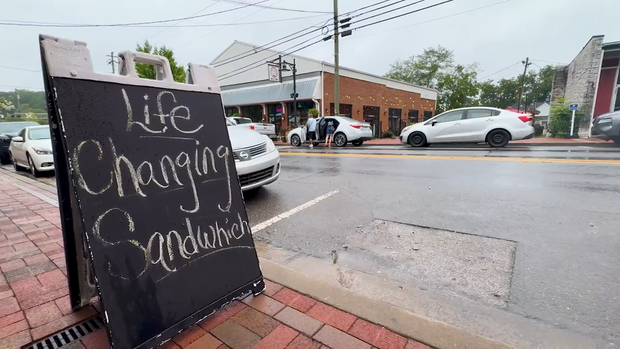 Life
Changing
Sandwhich